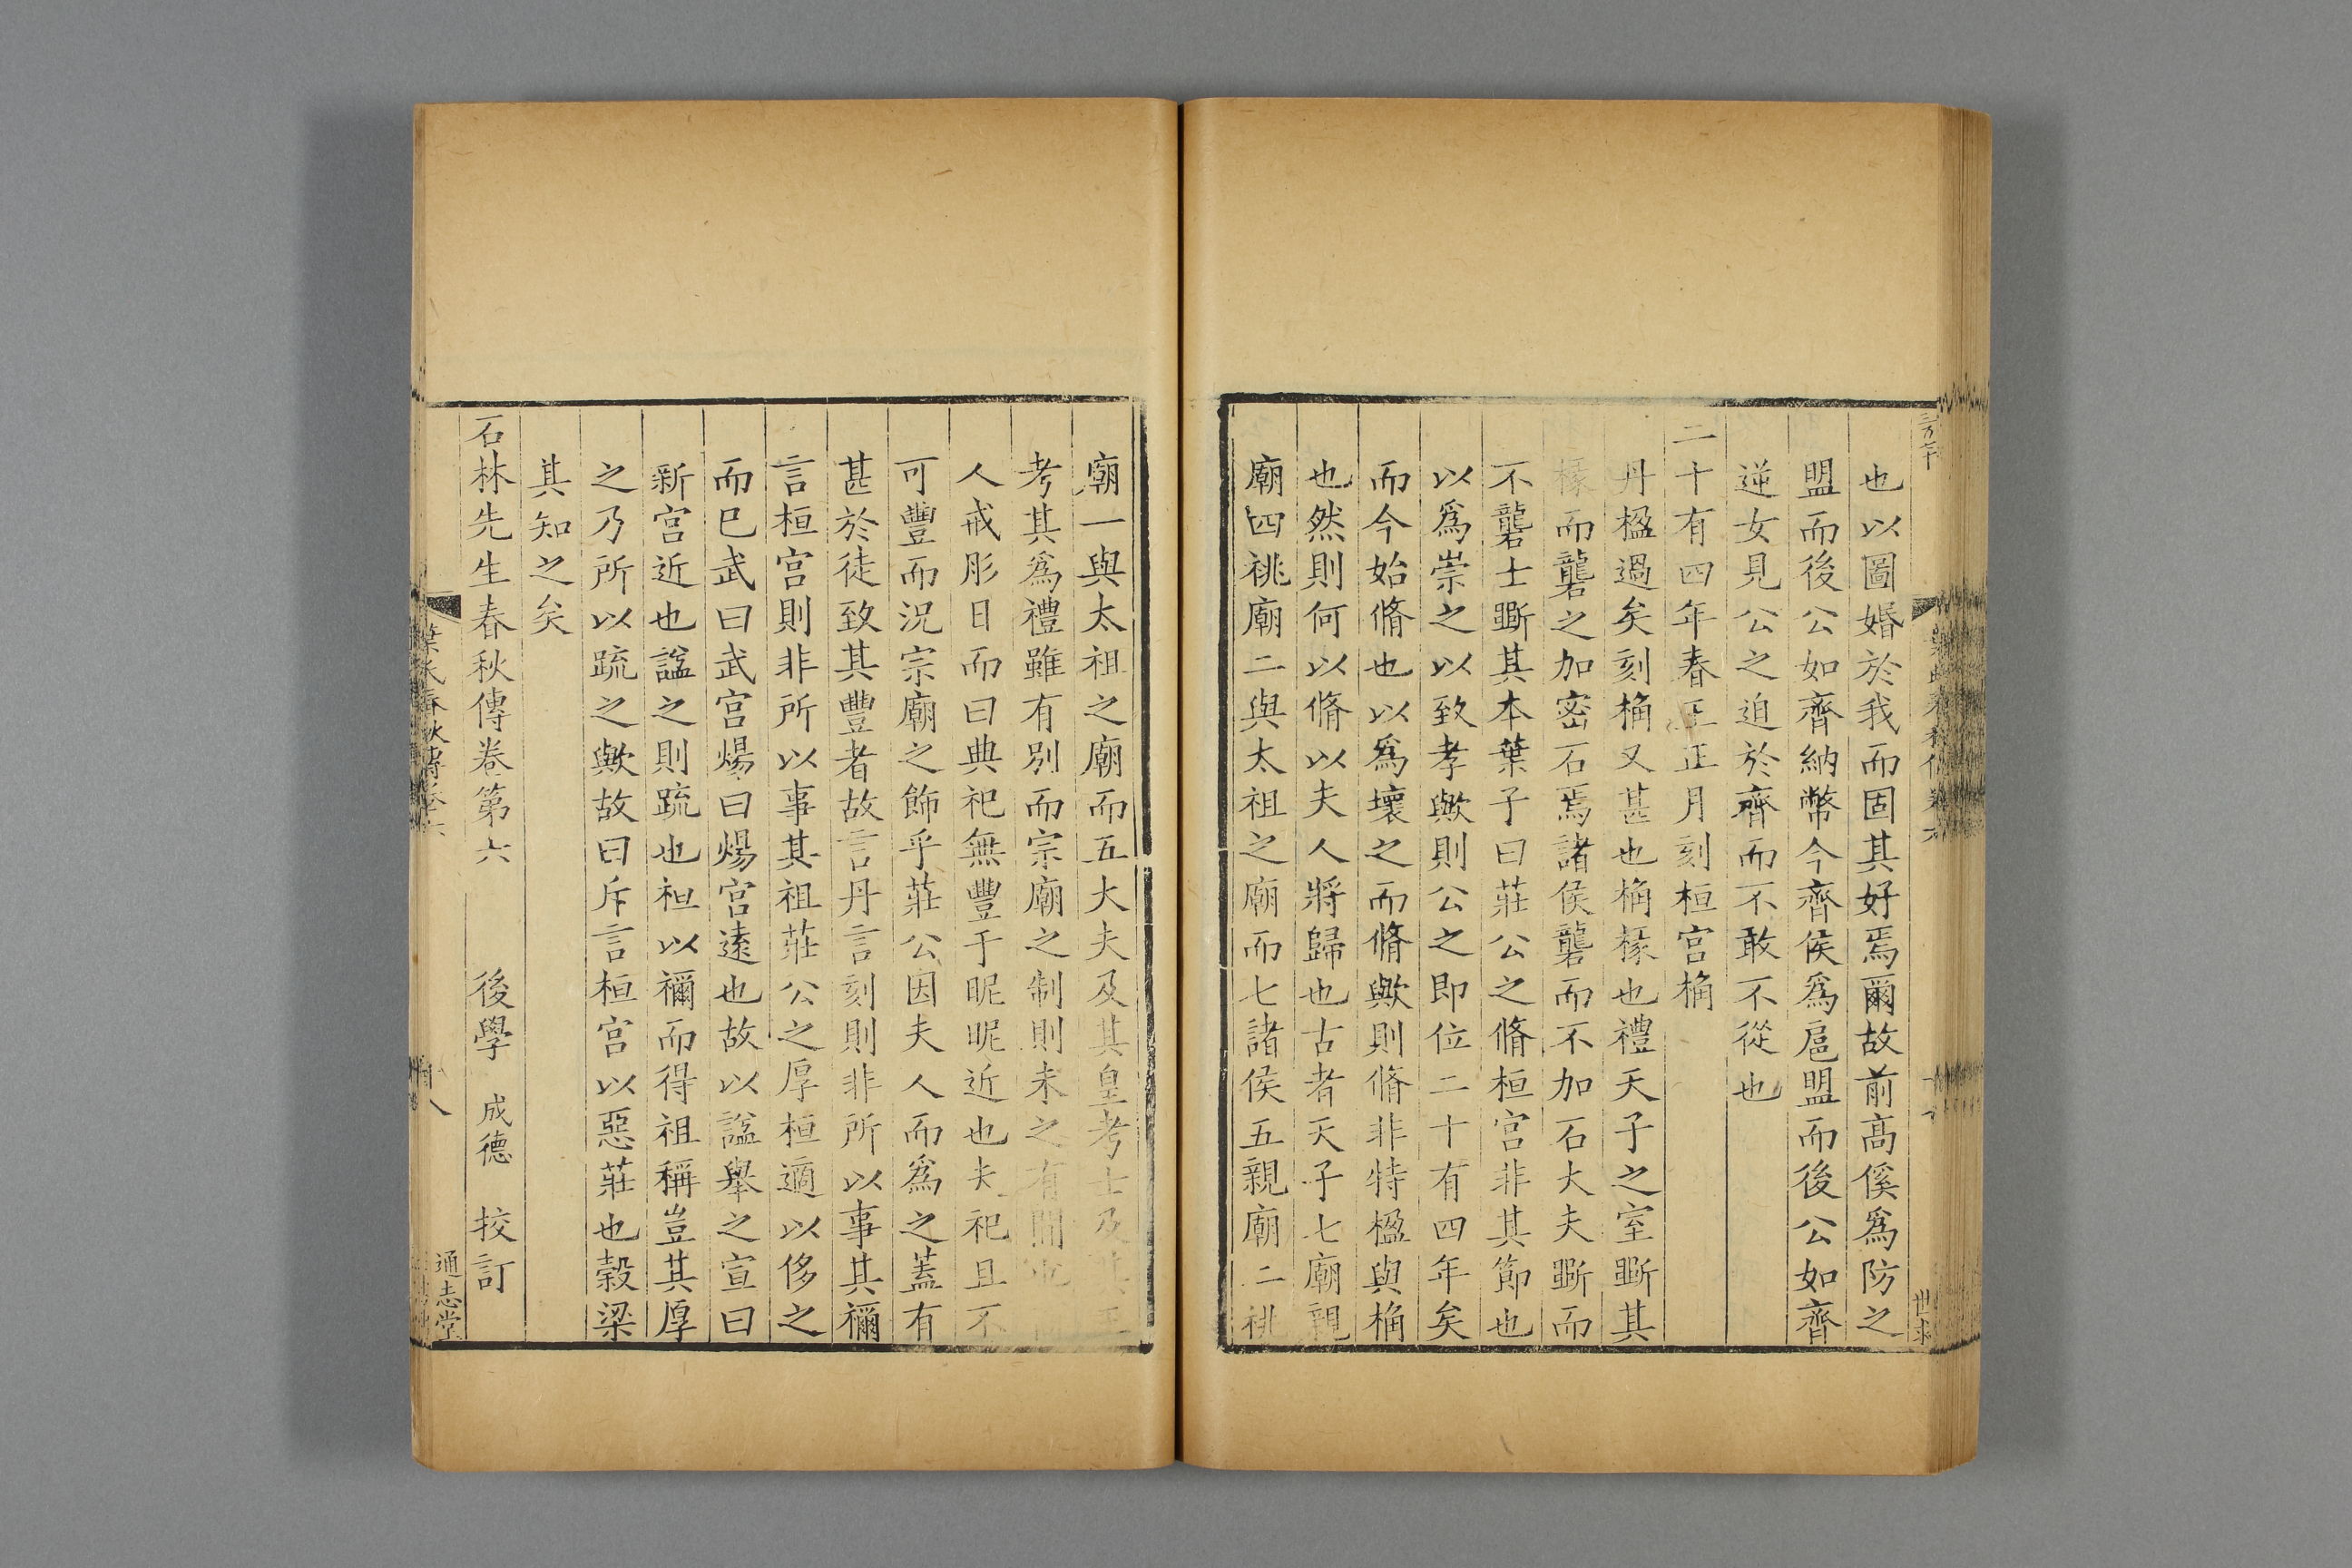 也以圖婚於我而固其好焉爾故前高傒爲防之
盟而後公如齊納幣今齊侯爲扈盟而後公如齊
逆女見公之迫於齊而不敢不從也
二十有四年春王正月刻桓宫桷
丹楹過矣刻桷又甚也桷椽也禮天子之室斲其
椽而礱之加密石焉諸侯礱而不加石大夫斲而
不礱士斲其本葉子曰莊公之脩桓宫非其節也
以爲崇之以致孝歟則公之即位二十有四年矣
而今始脩也以爲壞之而脩歟則脩非特楹與桷
也然則何以脩以夫人將歸也古者天子七廟親
廟四祧廟二與太祖之廟而七諸侯五親廟二祧
廟一與太祖之廟而五大夫及其皇考士及其王
考其爲禮雖有别而宗廟之制則未之有間也
人戒肜日而曰典祀無豐于昵昵近也夫祀且不
可豐而況宗廟之飾乎莊公因夫人而爲之蓋有
甚於徒致其豐者故言丹言刻則非所以事其禰
言桓宫則非所以事其祖莊公之厚桓適以侈之
而已武曰武宫煬曰煬宫遠也故以諡舉之宣曰
新宫近也諡之則疏也桓以禰而得祖稱豈其厚
之乃所以疏之歟故曰斥言桓宫以惡莊也榖梁
其知之矣
石林先生春秋傳卷第六
後學 成德 挍訂
葉氏春秋傳卷六
通志堂